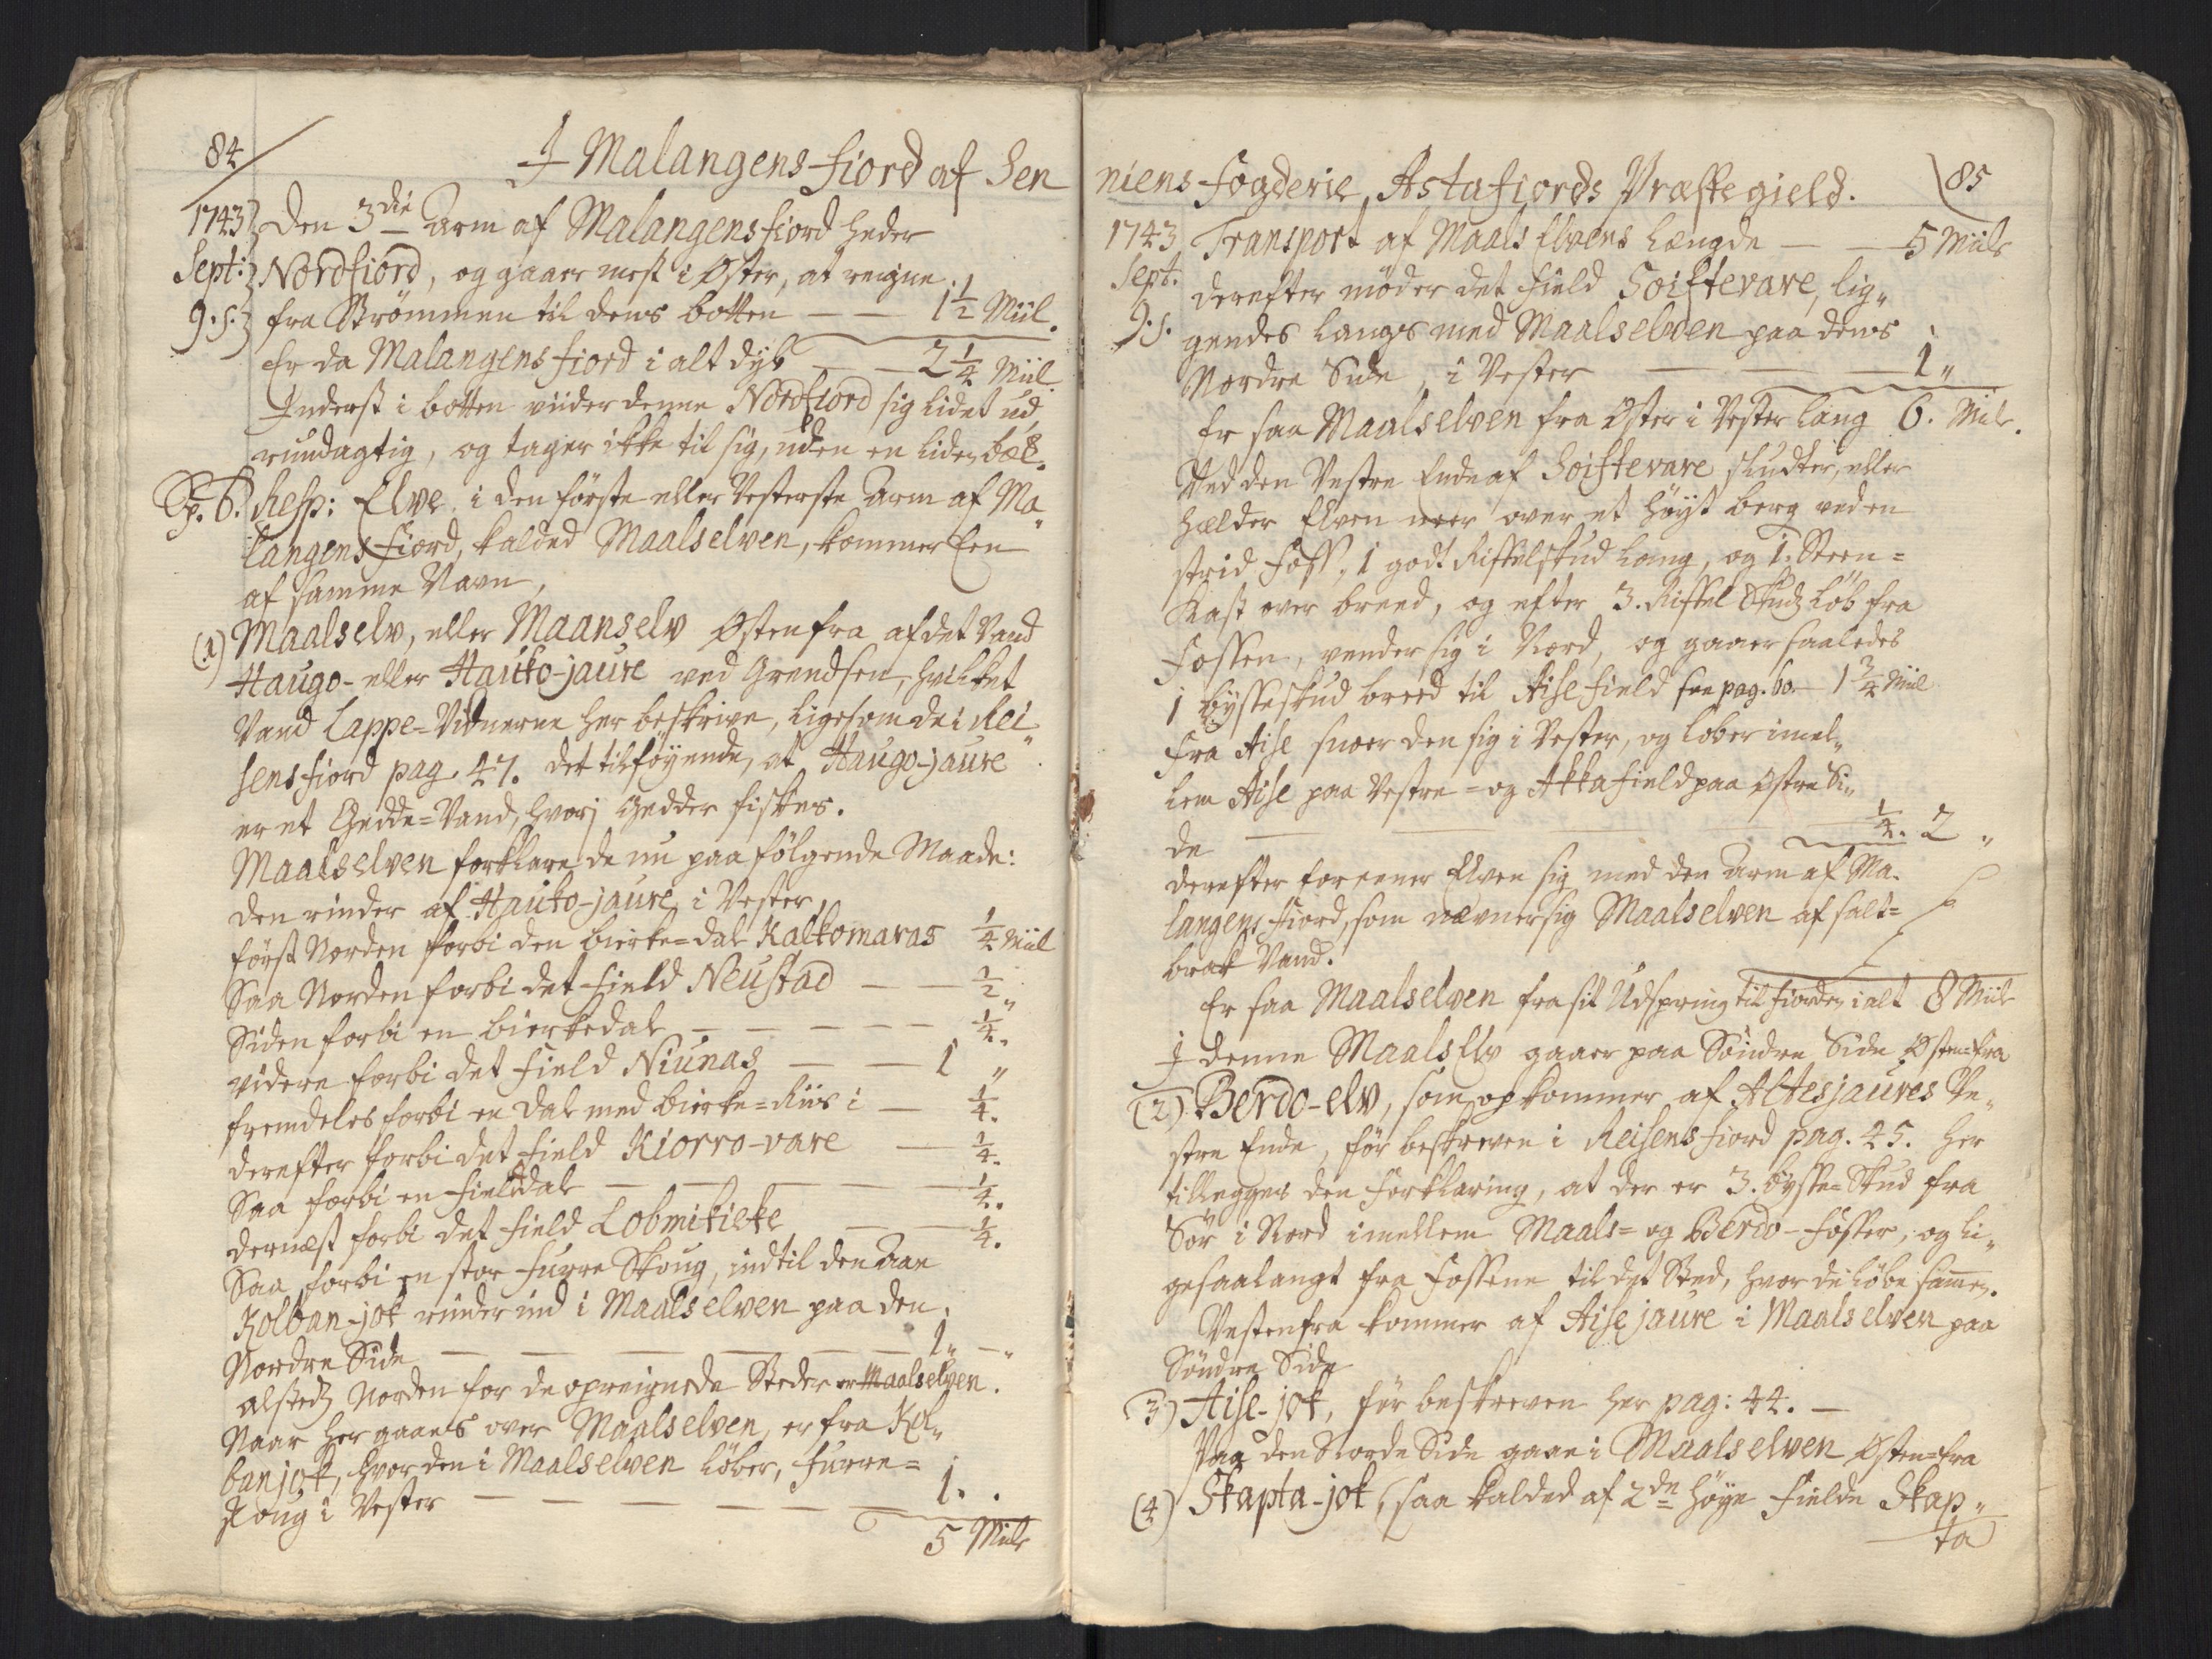 84
I Malangens fiord af Sen
1743 Den 3die Arm af Malangensfiord heder
Sept: Nordfiord, og gaaer mest i Øster, at reigne
9. s. fra Strømmen til dens botten — — 1 1/2 Miil.
Er da Malangens fiord i alt dyb — — 2 1/4 Miil
Inderst i botten viider denne Nordfiord sig lidet ud
rundagtig, og tager ikke til sig, uden en liden bæk.
Sp. 6. Resp: Elve. i den første eller Vesterste Arm af Ma„
langens Fiord, kalded Maalselven, kommer Een
af samme Navn,
(1) Maalselv, eller Maanselv Østenfra af det Vand
Haugo- eller Hauko-jaure ved Grendsen, hvilket
Vand Lappe=Vidnerne her beskrive, ligesom de i Rei„
sensfiord pag. 47. det tilføyende, at Haugo-jaure
er et Gedde=Vand, hvorj Gedder fiskes.
Maalselven forklare de nu paa følgende Maade:
den rinder af Hauko-jaure i Vester,
først Norden forbi den birke=dal Kalkomaras 1/4 Miil
Saa Norden forbi det field Neustad — — 1/2 „
Siden forbi en birkedal — — — — — 1/4.
videre forbi det Field Niunas — — 1 „
fremdeles forbi en dal med birke=Riis i — 1/4.
derefter forbi det field Kiorro-vare — 1/4.
Saa forbi en fielddal — — — — 1/4.
dernæst forbi det field Lobmikielke — — 1/4.
Saa forbi en stor Furre Skoug, indtil den Aae
Kolban-jok rinder ind i Maalselven paa den
Nordre Side — — — — — 1 „ — „
alsted Norden for de opreignede Steder er Maalselven.
Naar her gaaes over Maalselven, er fra Kol„
banjok, hvor den i Maalselven løber, Furre=
skoug i Vester — — — — — 1. .
5 Miile
85
niens Fogderie, Astafiords Præstegield.
1743 Transport af Maals Elvens Længde — — 5 Miile
Sept. derefter møder det Field Soistevare, lig„
9. s. gendes langs med Maalselven paa dens
Nordre Side, i Vester — — — 1 „
Er saa Maalselven fra Øster i Vester lang 6. Miile.
Ved den Vestre Ende af Soistevare skudter, eller
hælder Elven neer over et høyt berg ved en
strid Foss, 1 godt Riffelskud lang, og 1. Steen=
Kast over breed, og efter 3. Riffel Skuds løb fra
Fossen, vender sig i Nord, og gaaer saaledes
1 bysseskud breed til Aise field see pag. 60. — 1 3/4 Miil
Fra Aise snoer den sig i Vester, og løber imel„
lem Aise paa Vestre= og Akkafield paa Østre Si„
de — — — — 1/4. 2 „
derefter foreener Elven sig med den Arm af Ma„
langens Fiord, som nævner sig Maalselven af salt=
brak Vand.
Er saa Maalselven fra sit Udspring til Fiorden i alt 8 Miile
I denne Maals Elv gaaer paa Søndre Side Østen=fra
(2) Berdo-elv, som opkommer af Altesjaures Ve„
stre Ende, før beskreven i Reisens fiord pag. 45. Her
tillegges den Forklaring, at der er 3. bysse=Skud fra
Sør i Nord imellem Maals= og Berdo-Fosser, og li„
gesaalangt fra Fossene til det Sted, hvor de løbe samen.
Vestenfra kommer af Aisejaure i Maalselven paa
Søndre Side
(3) Aise-jok, før beskreven her pag: 44. —
Paa den Nordre Side gaaer i Maalselven Østen=fra
(4) Skapta-jok, saa kalded af 2de høye Fielde Skap„
ta